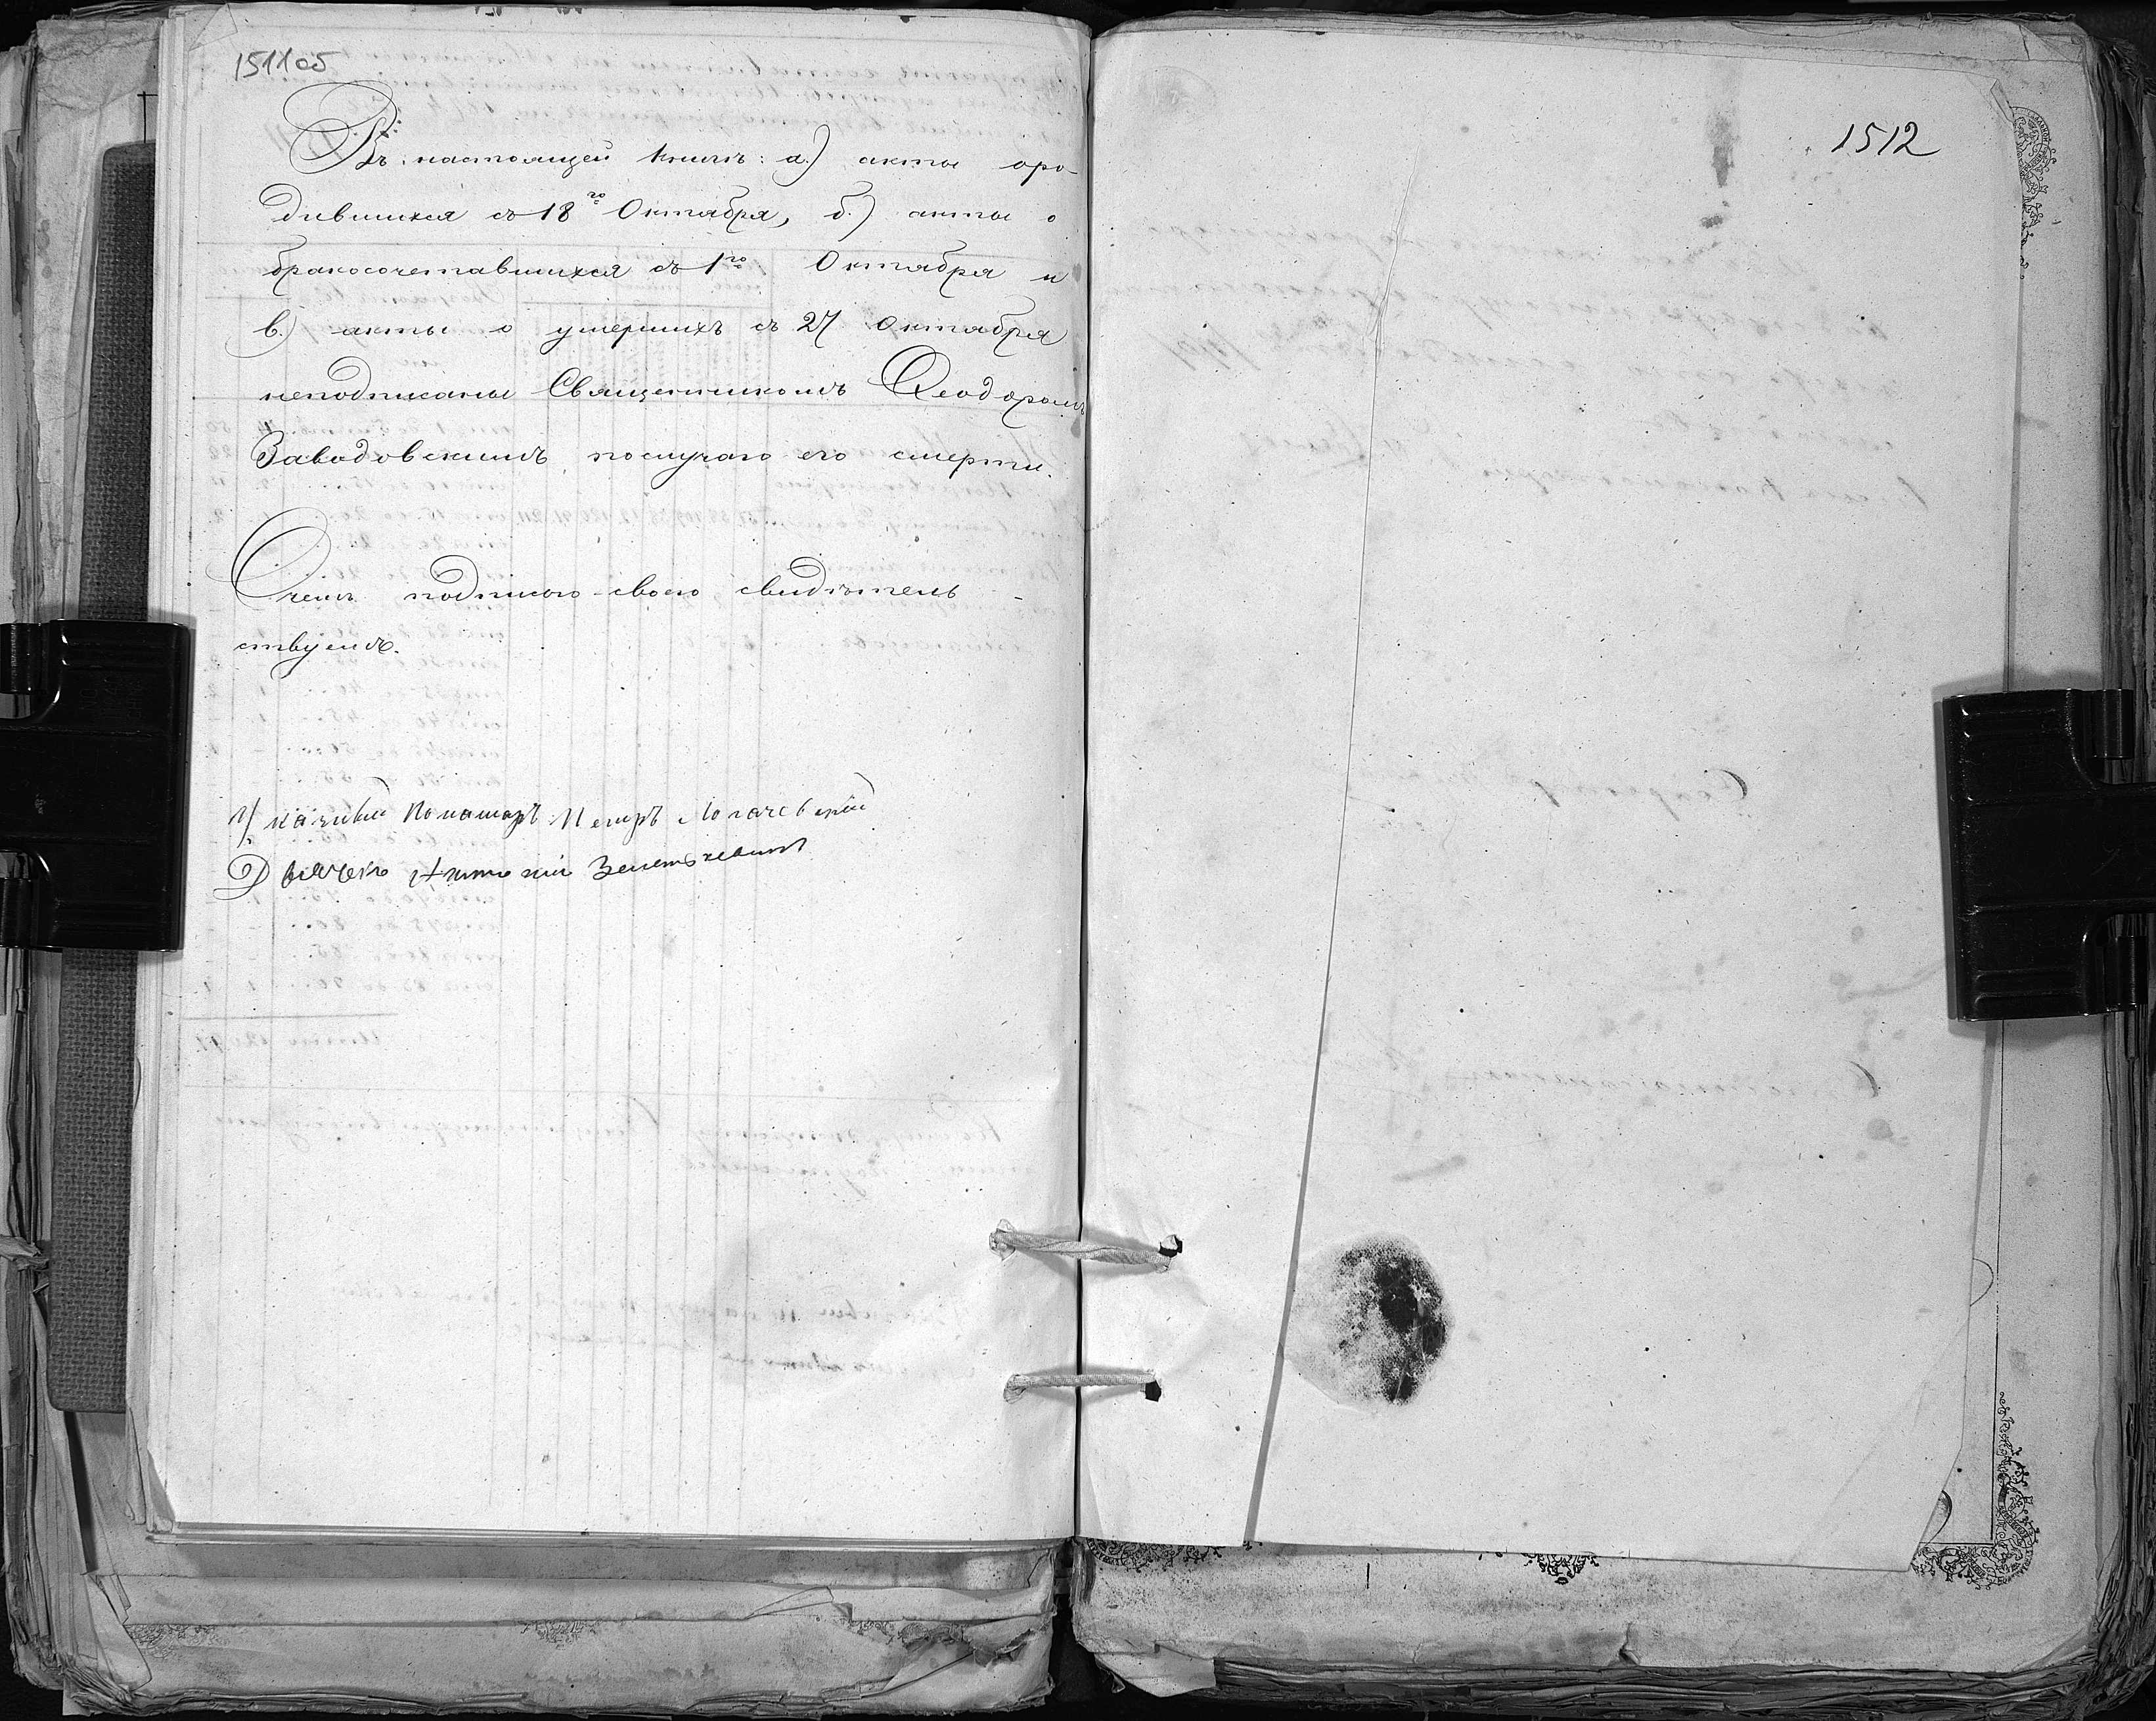 1511об
Въ настоящей книгѣ: а.) акты оро-
дившихся съ 18го Октября, б.) акты о
бракосочетавшихся съ 1го Октября и
в.) акты о умершихъ съ 27 Октября
неподписаны Священникомъ Ѳеодоромъ
Заводовскимъ послучаю его смерти.
Очемъ подписью своею свидѣтель-
ствуемъ.
Пономаръ Петръ
Дьячекъ Антоній
1512